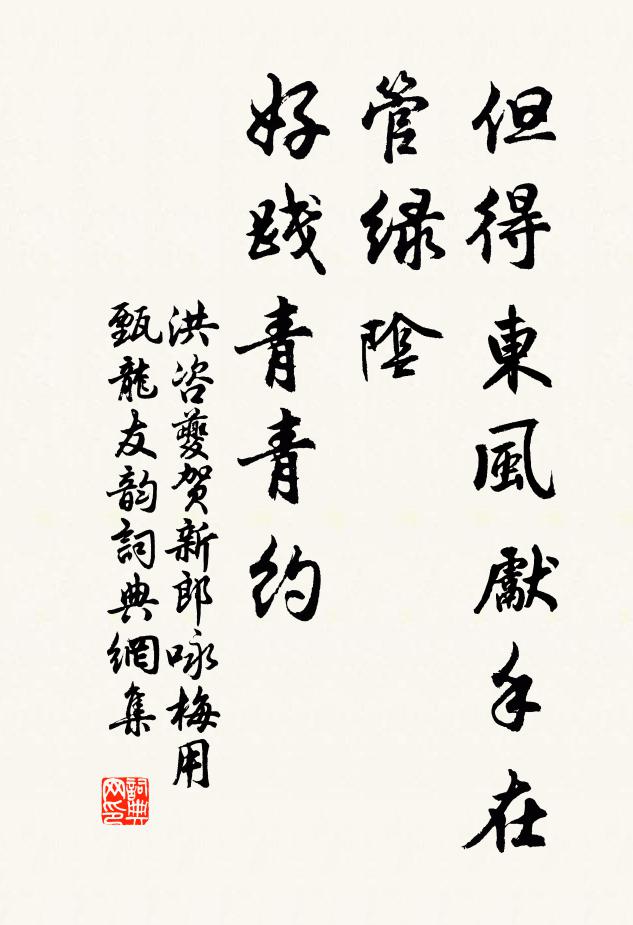 但得東風獻手在
管緑陰
好踐青青約
洪咨夔贺新郎咏梅用
甄龍友韵詞典網集
詞典网印